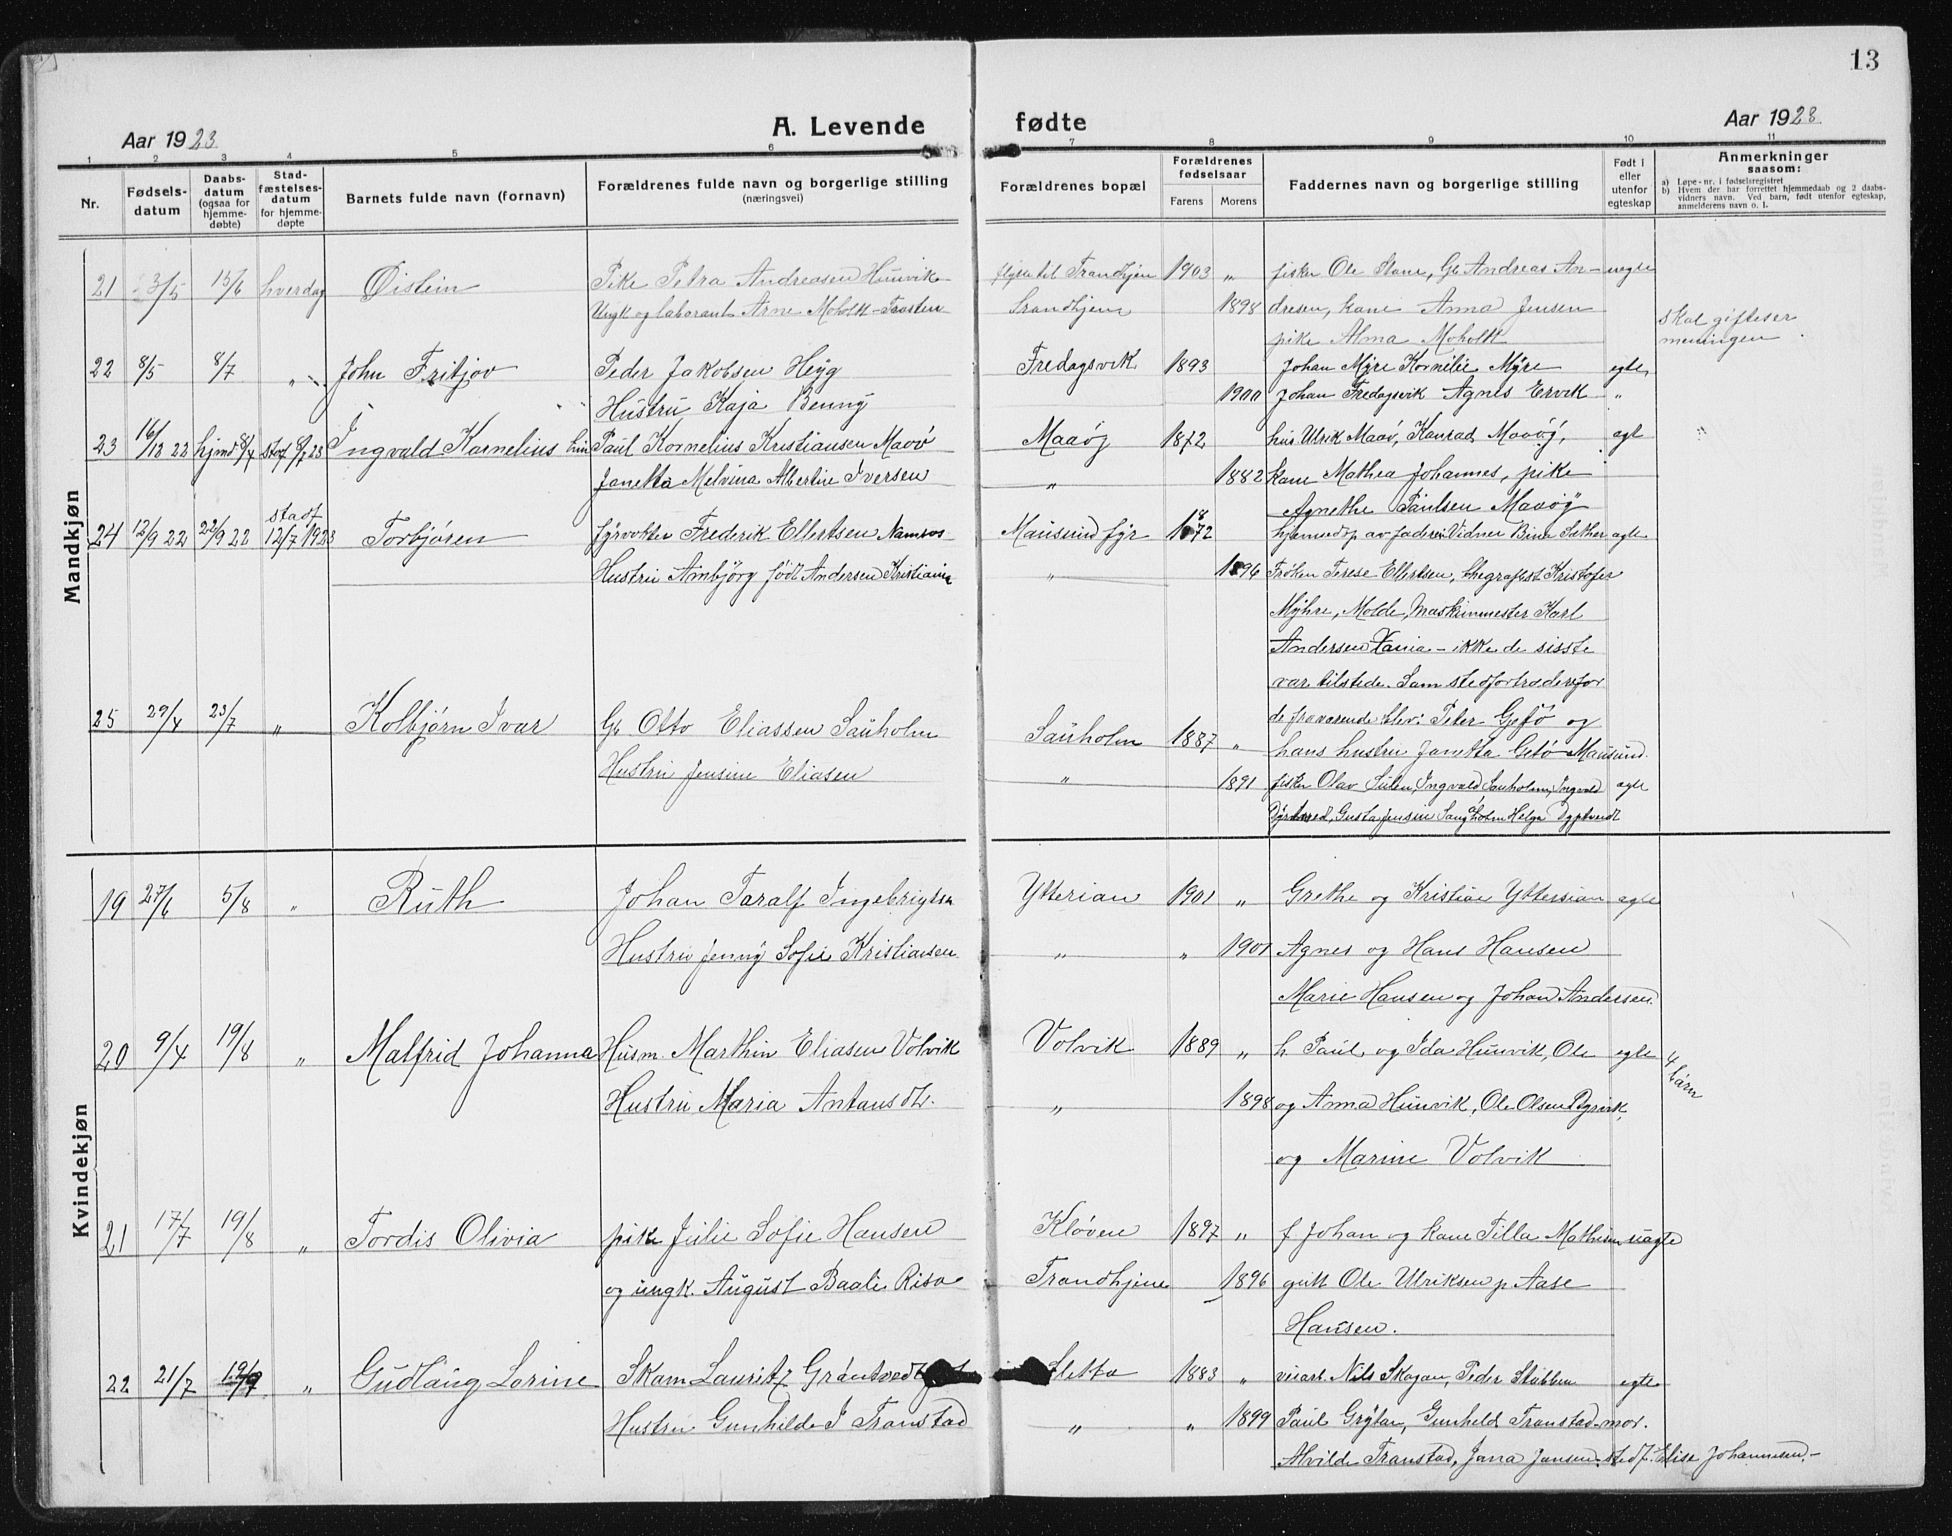 13
Aar 1923
A. Levende fødte
Aar 1923
1 2 3 4 5 6 7 8 9 10 11
Nr.
Fødsels-
datum
Daabs-
datum
(ogsaa for
hjemme-
døbte)
Stad-
fæstelses-
datum
for hjemme-
døpte
Barnets fulde navn (fornavn)
Forældrenes fulde navn og borgerlige stilling
(næringsvei)
Forældrenes bopæl
Forældrenes
fødselsaar
Farens Morens
Faddernes navn og borgerlige stilling
Født i
eller
utenfor
egteskap
Anmerkninger
saasom:
a) Løpe-nr. i fødselsregistret
b) Hvem der har forrettet hjemmedaab og 2 daabs-
vidners navn. Ved barn, født utenfor egteskap,
anmelderens navn o. l.
Mandkjøn
21 3/5 15/6 hverdag Øistein Pike Petra Andreasen Hunvik 1903 " fisker Ole Stene, Gb Andreas An- uegte
Ungk og laborant Arne Moholt Trondhjem 1898 dresen, kone Anna Jensen
pike Alma Moholt
skal giftes
meningen
22 8/5 8/7 " John Fritjov Peder Jakobsen Heyg Fredagsvik 1893 Johan Myre Kornelie Myre egte
Hustru Kaja Benny 1900 Johan Fredagsvik Agnes Ervik "
23 16/12 22 hjmd 8/4 stdf 8/7 23 Ingvald Kornelius Paul Kornelius Kristiansen Maaø Maaøy 1872 Ulrik Maaø, Konrad Maaøy, egt
Janetta Melvina Albertine Iversen " 1882 kone Mathea Johannes, pike
Agnethe Paulsen Maaøy
24 12/9 22 22/9 22 stadf 12/7 1923 Torbjøren fyrvokter Frederik Ellertsen Namsos Mausund fyr 1872 hjemmedøp av faderen Vidner Sæther egte
Hustru Ambjörg født Andersen Kristiania " 1896 Frøken Terese Ellertsen, thegrafist Kristofer
Myhre, Molde, Maskinmester Karl
Andersen Xania - ikke de sisste
var tilstede. Som stedfortrædere for
de fraværende blev: Peter Gefø og
hans hustru Janetta Gefø Mausund.
25 29/4 23/7 " Kolbjørn Ivar Gb Otto Eliassen Sauholm Sauholm 1887 "
Hustru Jensine Eliasen " 1891 fisker Olav Sulen, Ingvald Sauholm, Ingvald egte
Kvindekjøn
19 27/6 5/8 " Ruth Johan Taralf Ingebrigtsen Ytterian 1901 " Grethe og Kristian Yttersian egte
Hustru Jenny Sofie Kristiansen " " 1901 Agnes og Hans Hansen
Marie Hansen og Johan Andersen.
20 9/4 19/8 " Malfrid Johanna Husm. Marthin Eliasen Volvik Volvik 1889 " h Paul og Ida Hunvik, Ole egte 4 barn
Hustru Maria Antonsdtr. " 1898 og Anna Hunvik, Ole Olsen Dyrvik,
og Marine Volvik
21 17/7 19/8 " Tordis Olivia pike Julie Sofie Hansen Kløven 1897 " f Johan og kone Tilla Mathisen uegte
og ungk. August Baali Risa Trondhjem 1896 gutt Ole Ulriksen p. Aase
Hansen.
22 21/7 19/9 " Gudlaug Lorine Skom Lauritz Grøntvedt Sletta 1883 " Nils Skagan, Peder Stubben egte
Hustru Gunhilde J Transtad " " 1899 Paul Grytan, Gunhild Transtad mor.
Alvilde Transtad, Jana Jansen, stedf. Elise Johannesen -